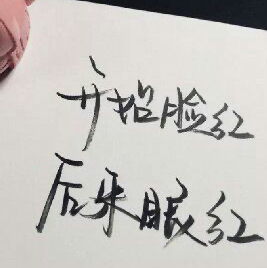 开始脸红
后来眼红